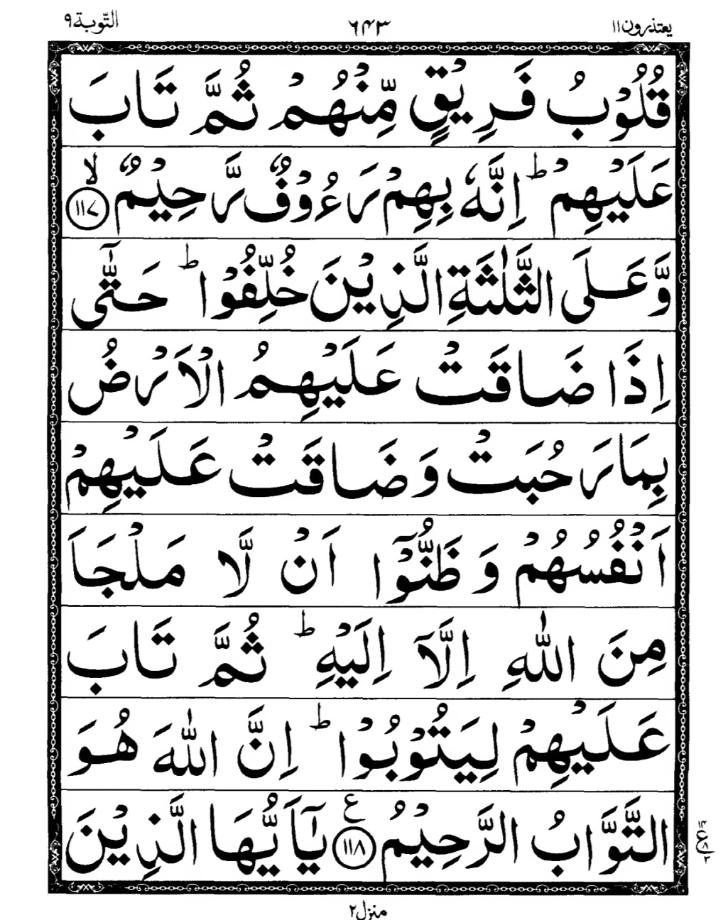 التوبة ٩ ٦٤٣ يعتذرون ١١
قُلُوۡبُ فَرِیۡقٍ مِّنۡهُمۡ ثُمَّ تَابَ
عَلَیۡهِمۡ ؕ اِنَّهٗ بِهِمۡ رَءُوۡفٌ رَّحِیۡمٌ ﴿۱۱۷﴾ۙ
وَّعَلَی الثَّلٰثَةِ الَّذِیۡنَ خُلِّفُوۡا ؕ حَتّٰۤی
اِذَا ضَاقَتۡ عَلَیۡهِمُ الۡاَرۡضُ
بِمَا رَحُبَتۡ وَضَاقَتۡ عَلَیۡهِمۡ
اَنۡفُسُهُمۡ وَظَنُّوۡۤا اَنۡ لَّا مَلۡجَاَ
مِنَ اللّٰهِ اِلَّاۤ اِلَیۡهِ ؕ ثُمَّ تَابَ
عَلَیۡهِمۡ لِیَتُوۡبُوۡا ؕ اِنَّ اللّٰهَ هُوَ
التَّوَّابُ الرَّحِیۡمُ ﴿۱۱۸﴾ ع یٰۤاَیُّهَا الَّذِیۡنَ
منزل ٢